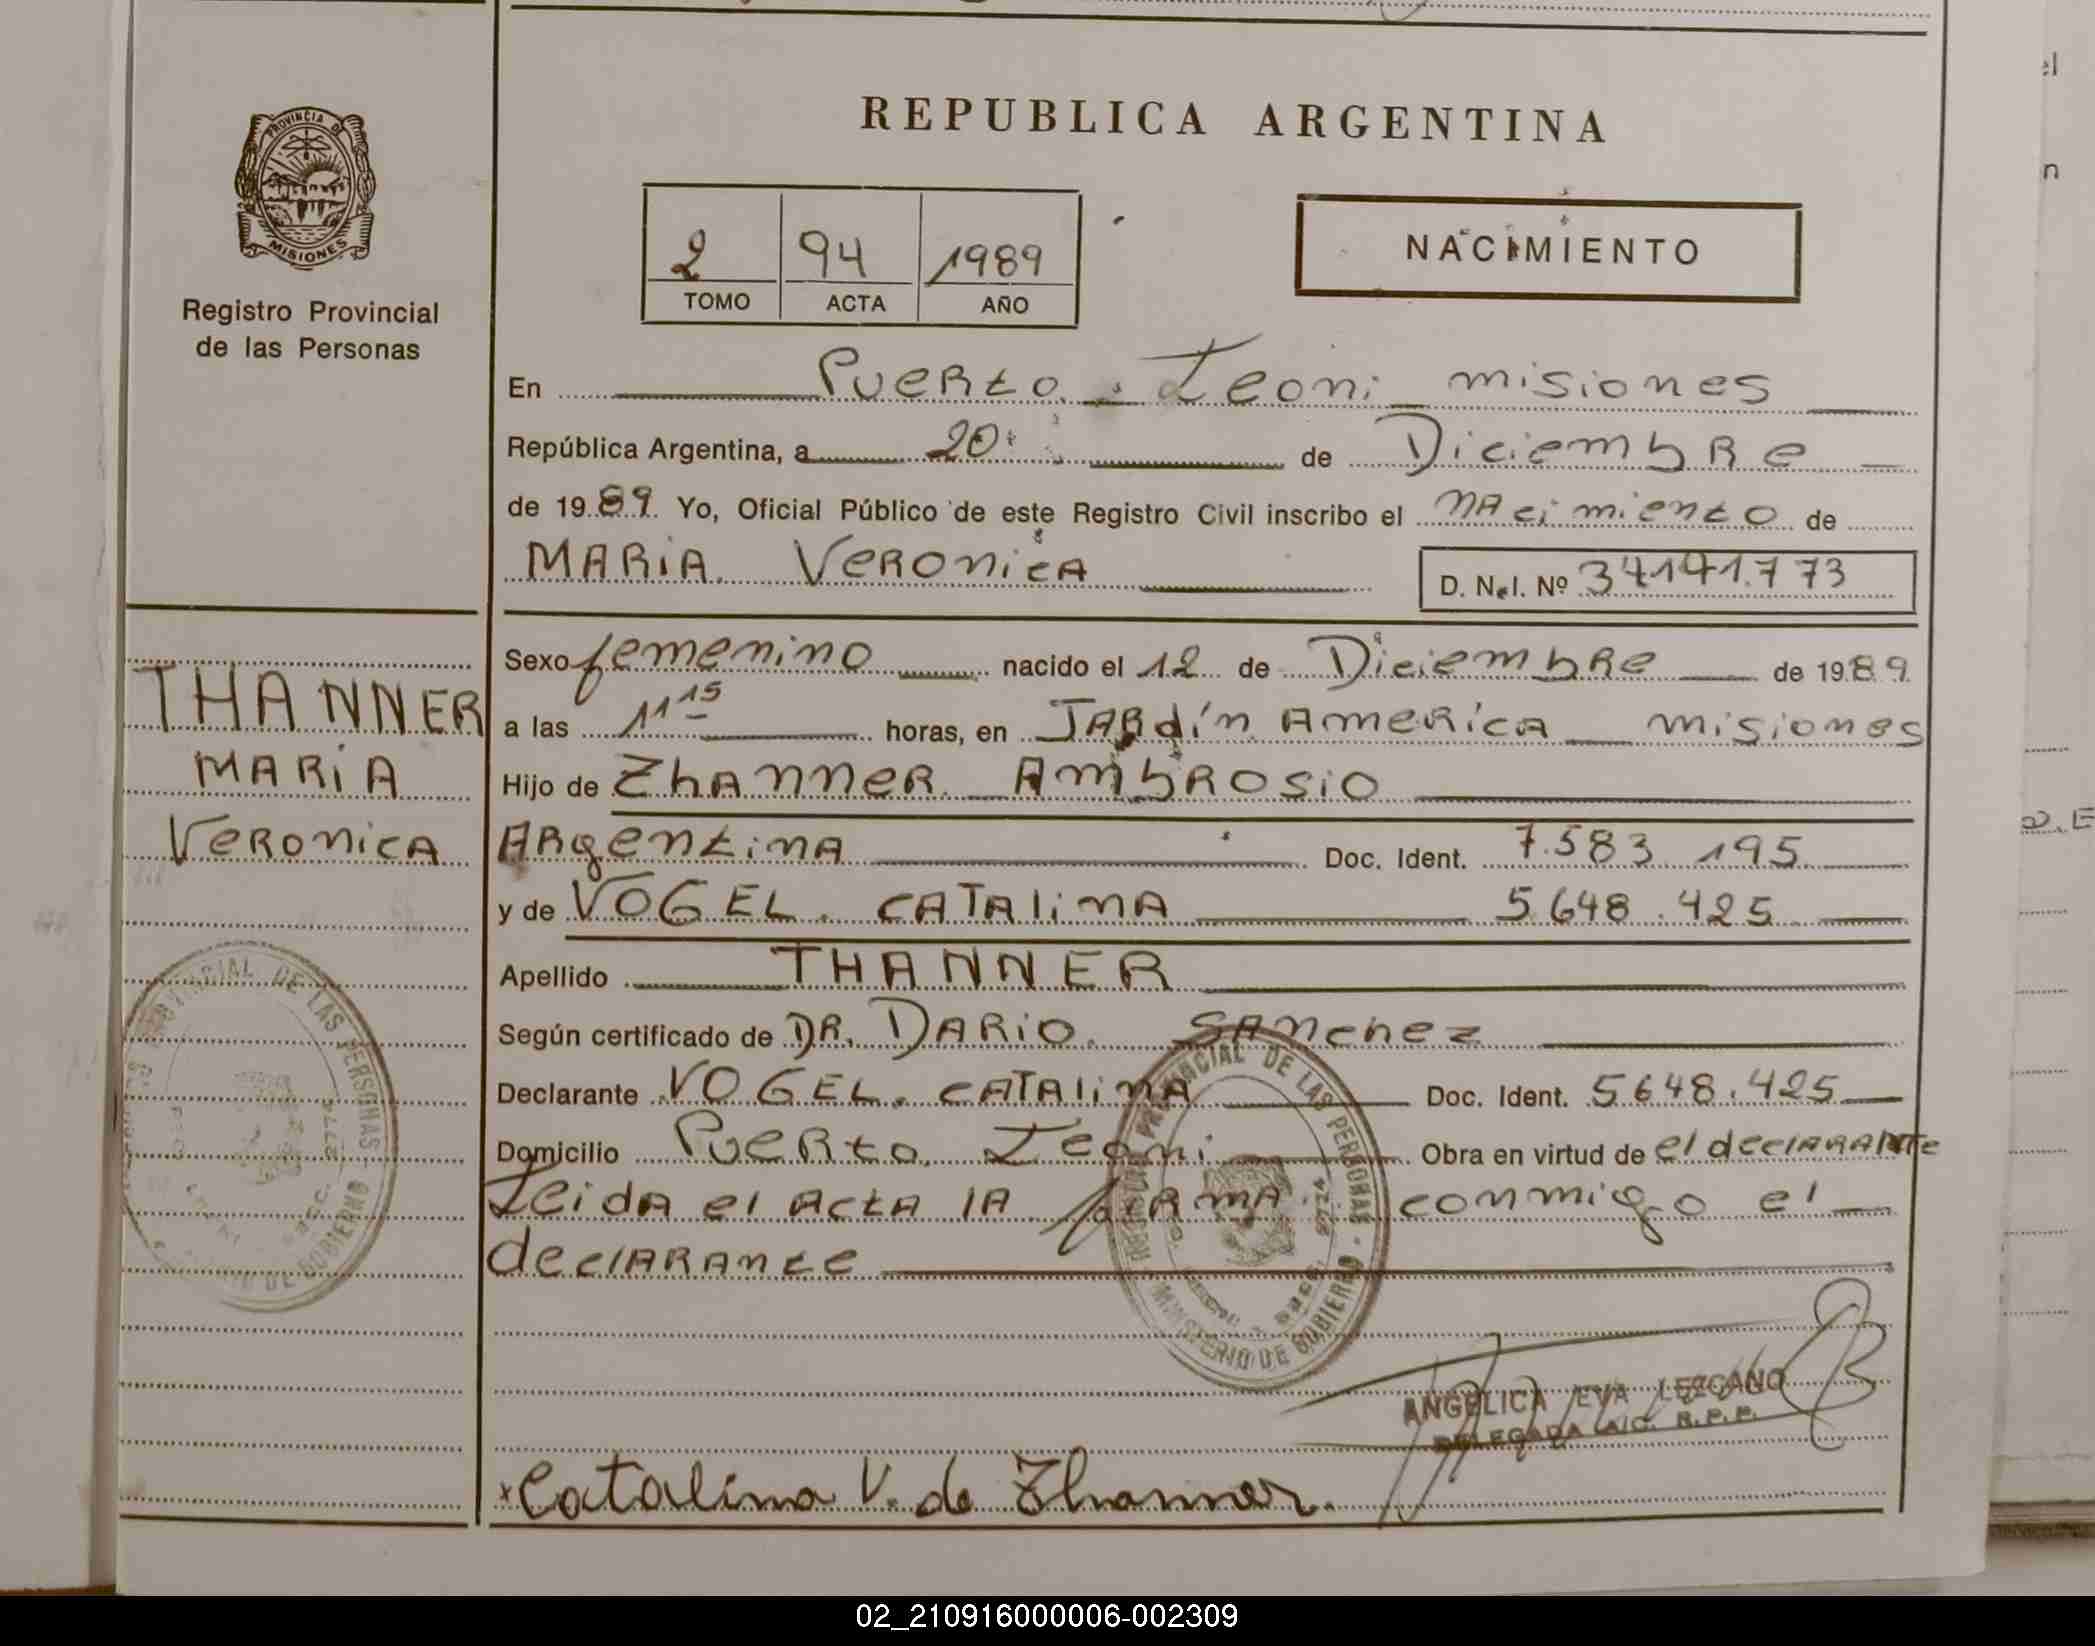 PROVINCIA DE
MISIONES
Registro Provincial
de las Personas
REPUBLICA ARGENTINA
2 94 1989
TOMO ACTA AÑO
NACIMIENTO
En Puerto Leoni misiones
República Argentina, a 20 de Diciembre
de 1989 Yo, Oficial Público de este Registro Civil inscribo el nacimiento de
MARIA Veronica D. N. I. Nº 34141.773
THANNER
MARIA
Veronica
Sexo femenino nacido el 12 de Diciembre de 1989
a las 11 15 horas, en Jardín America misiones
Hijo de Thanner Ambrosio
Argentina Doc. Ident. 7.583 195
y de VOGEL. CATALINA 5.648.425
Apellido THANNER
Según certificado de DR. DARIO. Sanchez
Declarante VOGEL. CATALINA Doc. Ident. 5648.425
Domicilio Puerto Leoni Obra en virtud de el declarante
Leida el acta la firma conmigo el
declarante
PROVINCIAL DE LAS PERSONAS
MINISTERIO DE GOBIERNO
ANGELICA EVA LEZCANO
DELEGADA A/C. R.P.P.
Catalina V. de Thanner.
02_210916000006-002309